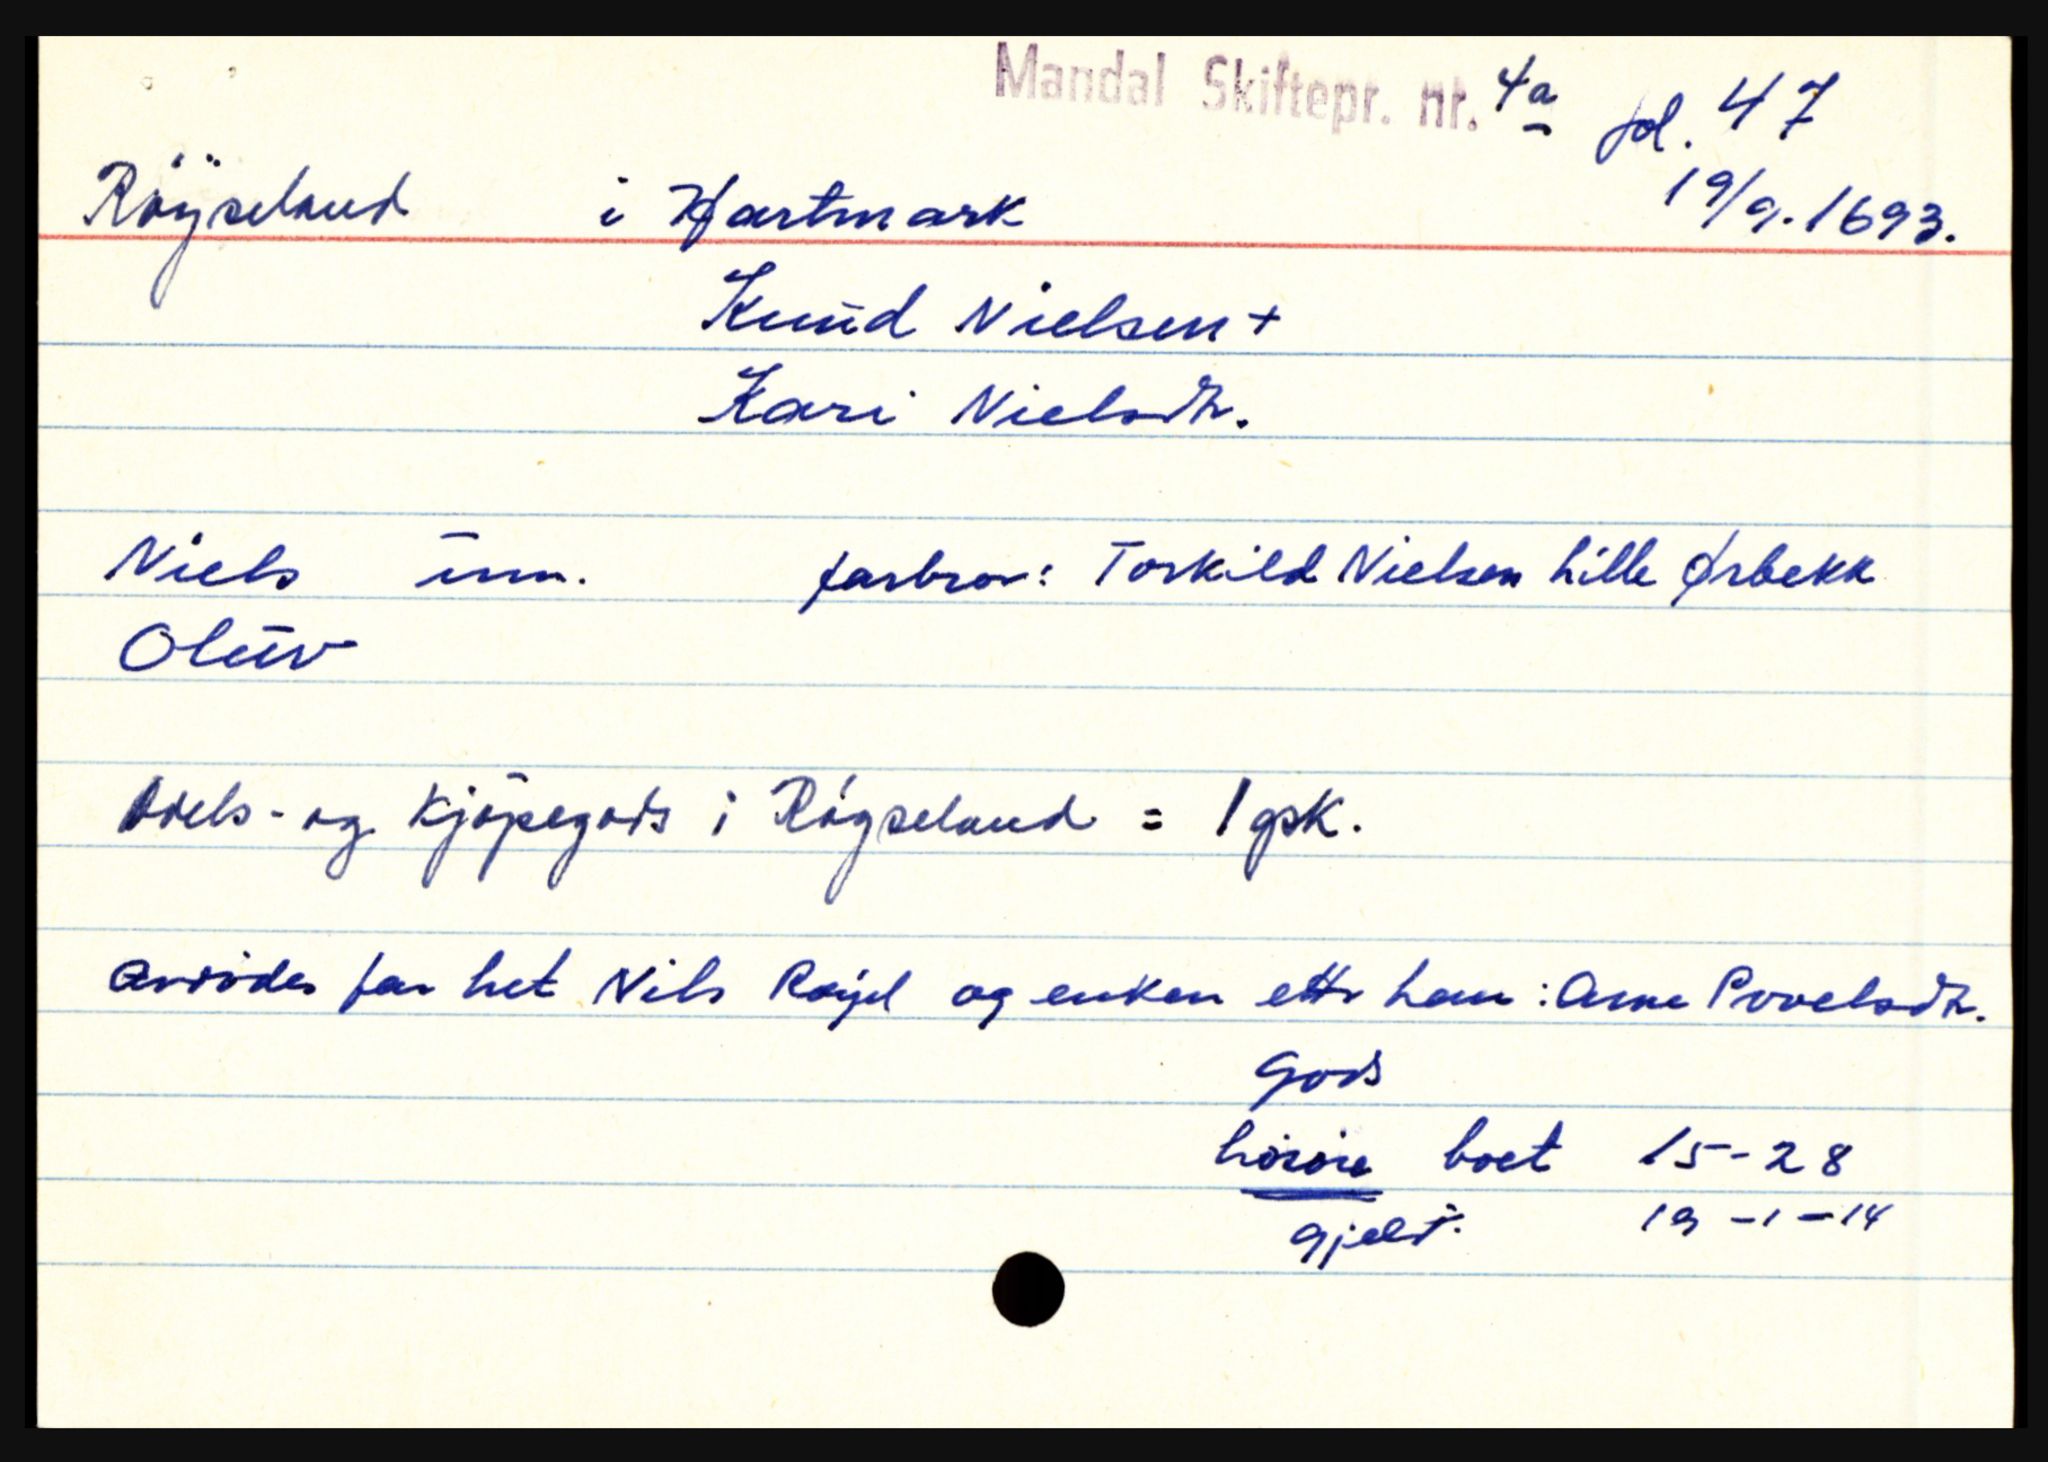 Mandal Skiftepr. nr. 4a fol. 47
Röyseland i Hartmark 19/9. 1693.
Knud Nielsen +
Kari Nielsdtr.
Niels um. farbror: Torkild Nielsen lille Ørbekk
Oluv
Odels- og kjöpegods i Röyseland = 1 gsk.
Avdödes far het Nils Röysl og enken etter ham: Anne Povelsdtr.
Gods
boet 15-28
gjeld. 19-1-14